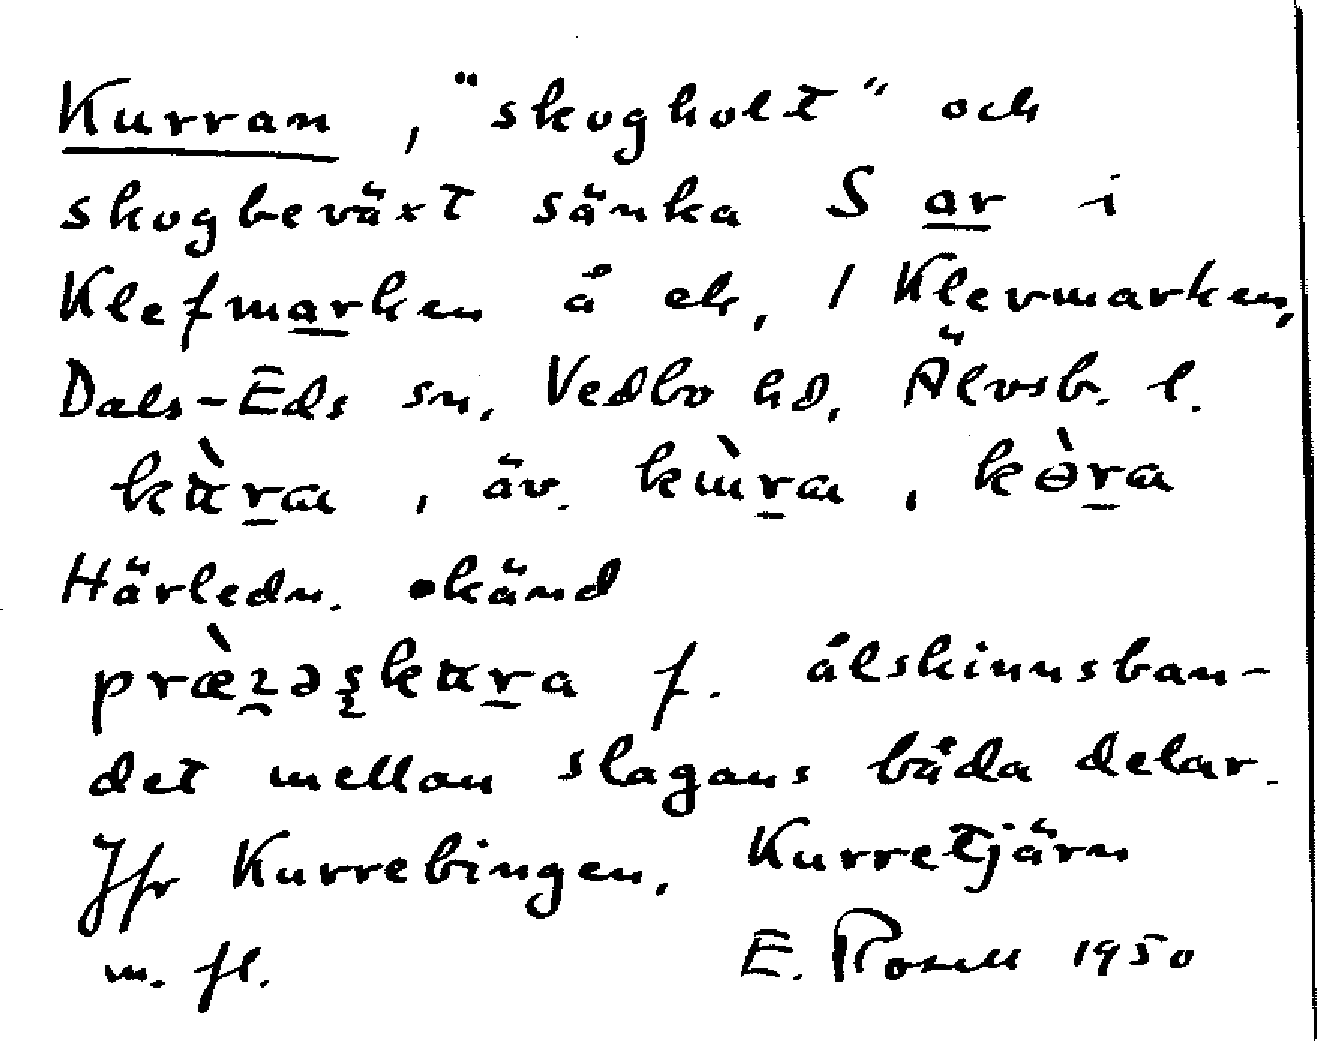 Kurran, "skogholt" och
skogbeväxt sänka S ar i
Klefmarken å ek, / Klevmarken,
Dals-Eds sn, Vedbo hd, Älvsb. l.
kɑ̀ra, äv. kɯ̀ra, kə̀ra
Härledn. okänd
f. ålskinnsban-
det mellan slagans båda delar.
Jfr Kurrebingen, Kurretjärn
m. fl. E. Rosell 1950